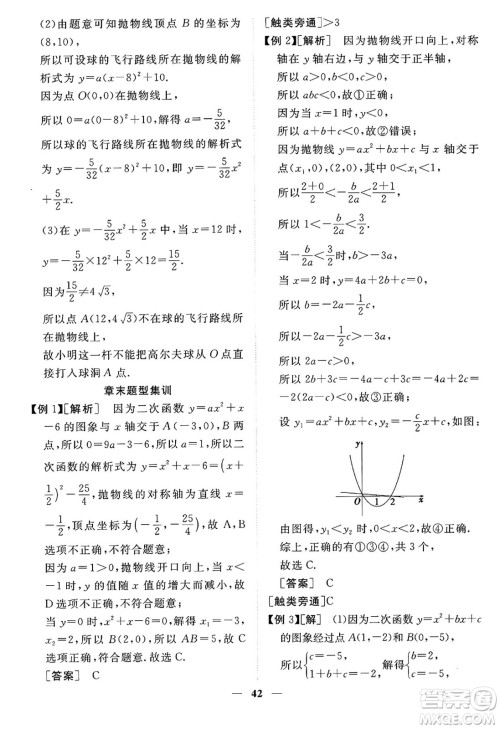 (2)由题意可知抛物线顶点 B 的坐标为
(8,10),
所以可设球的飞行路线所在抛物线的解
析式为 y=a(x-8)²+10.
因为点 O(0,0)在抛物线上,
所以 0=a(0-8)²+10,解得 a=-5/32.
所以球的飞行路线所在抛物线的解析式
为 y=-5/32(x-8)²+10,即 y=-5/32x²
+5/2x.
(3)在 y=-5/32x²+5/2x 中,当 x=12 时,
y=-5/32×12²+5/2×12=15/2.
因为15/2≠4√3,
所以点 A(12,4√3)不在球的飞行路线所
在抛物线上,
故小明这一杆不能把高尔夫球从 O 点直
接打入球洞 A 点.
章末题型集训
【例 1】[解析] 因为二次函数 y=ax²+x
-6 的图象与 x 轴交于 A(-3,0),B 两
点,所以 0=9a-3-6,所以 a=1,所以
二次函数的解析式为 y=x²+x-6=(x+
1/2)²-25/4,抛物线的对称轴为直线 x=
-1/2,顶点坐标为(-1/2,-25/4),故 A、B
选项不正确,不符合题意;
因为 a=1>0,抛物线开口向上,所以当 x
<-1/2时,y 的值随 x 值的增大而减小,故
D 选项不正确,不符合题意;
当 y=0 时,x²+x-6=0,所以 x₁=-3,
x₂=2,所以 B(2,0),故 C 选项正确,符合
题意.故选 C.
[答案] C
[触类旁通]>3
【例 2】[解析] 因为抛物线开口向上,对称
轴在 y 轴右边,与 y 轴交于正半轴,
所以 a>0,b<0,c>0,
所以 abc<0,故①正确;
因为当 x=1 时,y<0,
所以 a+b+c<0,故②错误;
因为抛物线 y=ax²+bx+c 与 x 轴交于
点(x₁,0),(2,0),其中 0<x₁<1,
所以(2+0)/2<-b/2a<(2+1)/2,
所以 1<-b/2a<3/2,
当-b/2a<3/2时,b>-3a,
当 x=2 时,y=4a+2b+c=0,
所以 b=-2a-1/2c,
所以-2a-1/2c>-3a,
所以 2a-c>0,故③正确;
设 y₁=ax²+bx+c,y₂=-c/2x+c,如图.
x
0 1 2 x
由图得,y₁<y₂ 时,0<x<2,故④正确.
综上,正确的有①③④,共 3 个,
故选 C.
[答案] C
[触类旁通]C
【例 3】[解析] (1)因为二次函数 y=x²+bx+c
的图象经过点 A(0,-5),点 B(1,0),
所以{c=-5,1+b+c=0, 解得{b=4,c=-5,
42